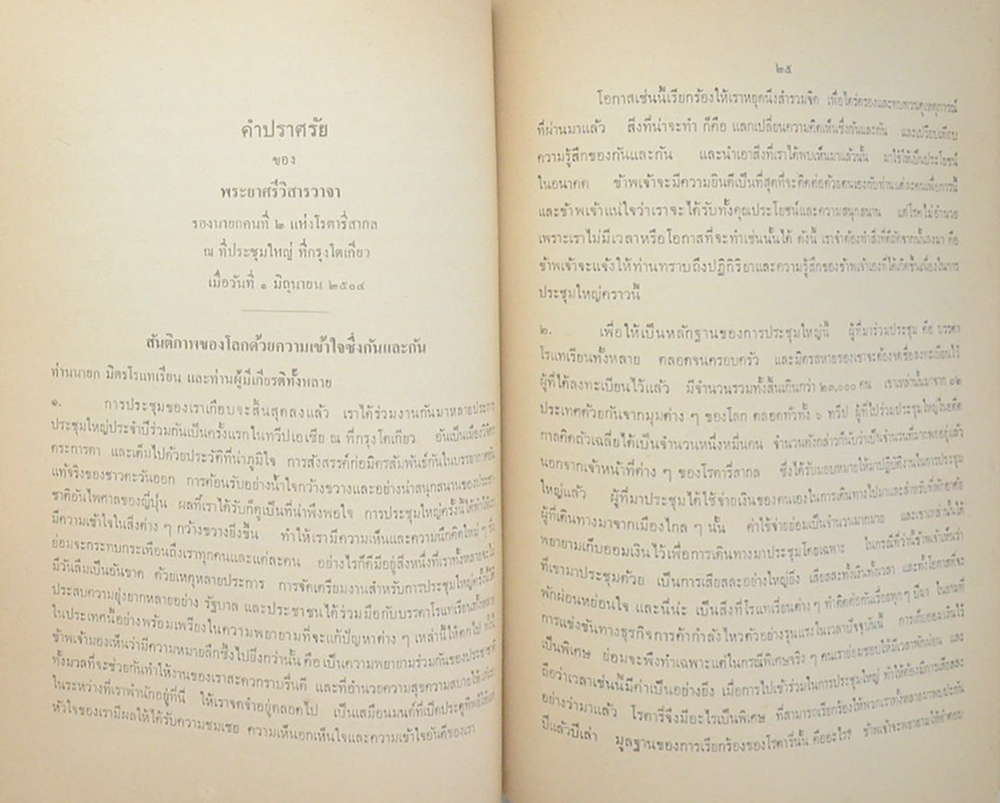 คำปราศรัย
ของ
พระยาศรีวิสารวาจา
รองนายกคนที่ ๒ แห่งโรตารี่สากล
ณ ที่ประชุมใหญ่ ที่กรุงโตเกียว
เมื่อวันที่ ๑ มิถุนายน ๒๕๐๔
สันติภาพของโลกด้วยความเข้าใจซึ่งกันและกัน
ท่านนายก มิตรโรแทเรียน และท่านผู้มีเกียรติทั้งหลาย
๑. การประชุมของเราเกือบจะสิ้นสุดลงแล้ว เราได้ร่วมงานกันมาหลายประการ
ประชุมใหญ่ประจำปีร่วมกันเป็นครั้งแรกในทวีปเอเซีย ณ ที่กรุงโตเกียว อันเป็นเมืองวิจิตร
ตระการตา และเต็มไปด้วยประวัติที่น่าภูมิใจ การสังสรรค์ก่อมิตรสัมพันธ์กันในบรรยากาศอัน
แท้จริงของชาวตะวันออก การต้อนรับอย่างน้ำใจกว้างขวางและอย่างน่าสนุกสนานของประชา
ชาติอันไพศาลของญี่ปุ่น ผลที่เราได้รับก็ดูเป็นที่น่าพึงพอใจ การประชุมใหญ่ครั้งนี้ได้ทำให้เรา
มีความเข้าใจในสิ่งต่าง ๆ กว้างขวางยิ่งขึ้น ทำให้เรามีความเห็นและความนึกคิดใหม่ ๆ ซึ่ง
ย่อมจะกระทบกระเทือนถึงเราทุกคนและแต่ละคน อย่างไรก็ดีมีอยู่สิ่งหนึ่งที่เราทั้งหลายจะไม่
มีวันลืมเป็นอันขาด ด้วยเหตุหลายประการ การจัดเตรียมงานสำหรับการประชุมใหญ่ครั้งนี้ได้
ประสบความยุ่งยากหลายอย่าง รัฐบาล และประชาชนได้ร่วมมือกับบรรดาโรแทเรียนทั้งหลาย
ในประเทศนี้อย่างพร้อมเพรียงในความพยายามที่จะแก้ปัญหาต่าง ๆ เหล่านี้ให้ตกไป
ข้าพเจ้ามองเห็นว่ามีความหมายลึกซึ้งไปยิ่งกว่านั้น คือ เป็นความพยายามร่วมกันของประชาชาติ
ทั้งมวลที่จะช่วยกันทำให้งานของเราสะดวกราบรื่นดี และที่อำนวยความสุขความสบายให้แก่เรา
ในระหว่างที่เราพำนักอยู่ที่นี่ ให้เราจดจำอยู่ตลอดไป เป็นเสมือนมนต์ที่เปิดประตู
หัวใจของเรามีผลให้ได้รับความชมเชย ความเห็นอกเห็นใจและความเข้าใจอันดีของเรา
๒๕
โอกาสเช่นนี้เรียกร้องให้เราหยุดนึ่งสำรวมจิต เพื่อไตร่ตรองและทบทวนดูเหตุการณ์
ที่ผ่านมาแล้ว สิ่งที่น่าจะทำ ก็คือ แลกเปลี่ยนความคิดเห็นซึ่งกันและกัน และเปรียบเทียบ
ความรู้สึกของกันและกัน และนำเอาสิ่งที่เราได้พบเห็นมาแล้วนั้น มาใช้ให้เป็นประโยชน์
ในอนาคต ข้าพเจ้าจะมีความยินดีเป็นที่สุดที่จะติดต่อด้วยตนเองกับท่านแต่ละคนเพื่อการนี้
และข้าพเจ้าแน่ใจว่าเราจะได้รับทั้งคุณประโยชน์และความสนุกสนาน แต่โชคไม่อำนวย
เพราะเราไม่มีเวลาหรือโอกาสที่จะทำเช่นนั้นได้ ดังนี้ เราจำต้องทำสิ่งที่ดีถัดจากนั้นลงมา คือ
ข้าพเจ้าจะแจ้งให้ท่านทราบถึงปฏิกิริยาและความรู้สึกของข้าพเจ้าเองที่ได้เกิดขึ้นเนื่องในการ
ประชุมใหญ่คราวนี้
๒. เพื่อให้เป็นหลักฐานของการประชุมใหญ่นี้ ผู้ที่มาร่วมประชุม คือ บรรดา
โรแทเรียนทั้งหลาย ตลอดจนครอบครัว และมิตรสหายของเขาจะต้องจดชื่อลงทะเบียนไว้
ผู้ที่ได้ลงทะเบียนไว้แล้ว มีจำนวนรวมทั้งสิ้นเกินกว่า ๒๓,๐๐๐ คน เขาเหล่านั้นมาจาก ๗๒
ประเทศด้วยกันจากมุมต่าง ๆ ของโลก ตลอดทั่วทั้ง ๖ ทวีป ผู้ที่ไปร่วมประชุมใหญ่ในอดีต
กาลคิดถัวเฉลี่ยได้เป็นจำนวนหนึ่งหมื่นคน จำนวนดังกล่าวก็นับว่าเป็นจำนวนที่มากพออยู่แล้ว
นอกจากเจ้าหน้าที่ต่าง ๆ ของโรตารี่สากล ซึ่งได้รับมอบหมายให้มาปฏิบัติงานในการประชุม
ใหญ่แล้ว ผู้ที่มาประชุมได้ใช้จ่ายเงินของตนเองในการเดินทางไปมาและสำหรับที่พักอาศัย
ผู้ที่เดินทางมาจากเมืองไกล ๆ นั้น ค่าใช้จ่ายย่อมเป็นจำนวนมากมาย และเขาเหล่านั้นได้
พยายามเก็บออมเงินไว้เพื่อการเดินทางมาประชุมโดยเฉพาะ ในกรณีที่ว่านี้ข้าพเจ้าเห็นว่า
ที่เขามาประชุมด้วย เป็นการเสียสละอย่างใหญ่ยิ่ง เสียสละทั้งเงินทั้งเวลา และทั้งโอกาสที่จะ
พักผ่อนหย่อนใจ และนี่น่ะ เป็นสิ่งที่โรแทเรียนต่าง ๆ ทำติดต่อกันเรื่อยทุก ๆ ปีมา ในยามที่
การแข่งขันทางธุรกิจการค้ากำลังไหวตัวอย่างรุนแรงในเวลาปัจจุบันนี้ การเก็บออมเงินไว้
เป็นพิเศษ ย่อมจะพึงทำเฉพาะแต่ในกรณีพิเศษจริง ๆ คนเราย่อมชอบให้มีเวลาพักผ่อน และ
ถือว่าเวลาเช่นนี้มีค่าเป็นอย่างยิ่ง เมื่อการไปเข้าร่วมในการประชุมใหญ่ ทำให้ต้องมีการเสียสละ
อย่างว่ามาแล้ว โรตารี่จึงมีอะไรเป็นพิเศษ ที่สามารถเรียกร้องให้พวกเราทั้งหลายมาพบปะกัน
ปีแล้วปีเล่า มูลฐานของการเรียกร้องของโรตารี่นั้น คืออะไร? ข้าพเจ้าจะพยายามให้คำตอบ